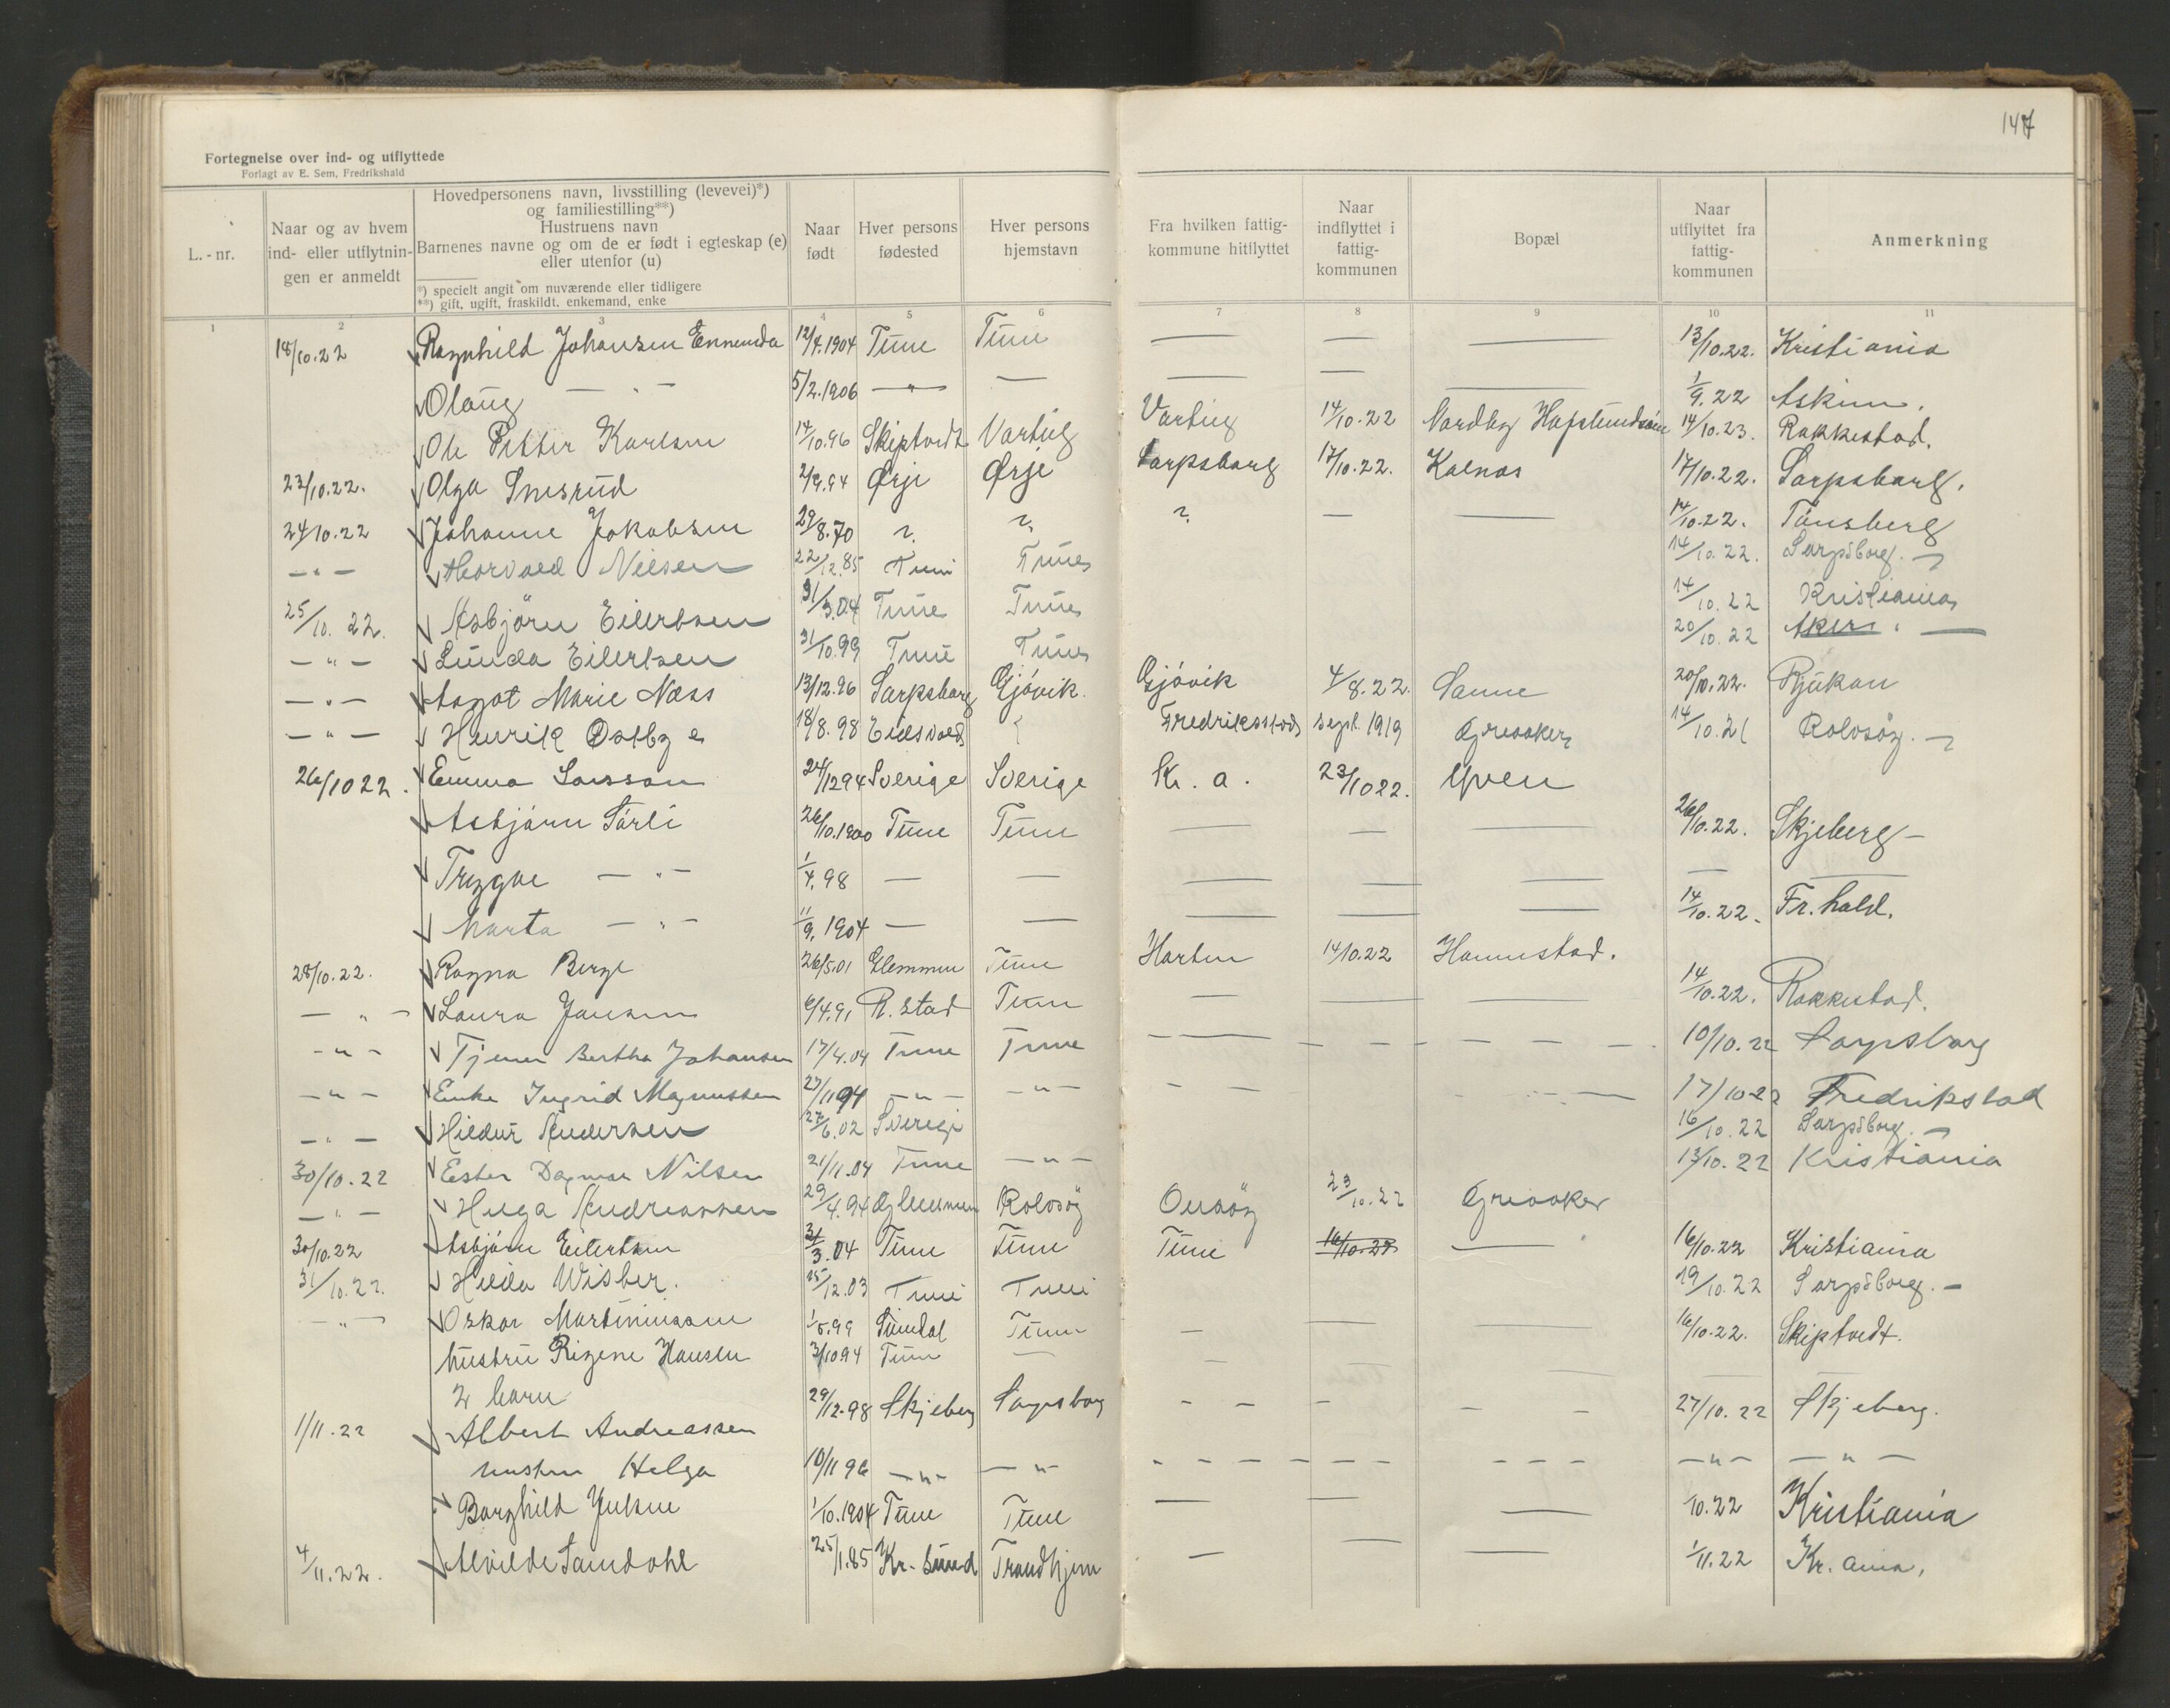 147
Fortegnelse over ind- og utflyttede
Forlagt av E. Sem, Fredrikshald
L.-nr.
Naar og av hvem ind- eller utflytningen er anmeldt
Hovedpersonens navn, livsstilling (levevei)*) og familiestilling**) Hustruens navn Barnenes navne og om de er født i egteskap (e) eller utenfor (u)
*) specielt angit om nuværende eller tidligere
**) gift, ugift, fraskildt, enkemand, enke
Naar født
Hver persons fødested
Hver persons hjemstavn
Fra hvilken fattigkommune hitflyttet
Naar indflyttet i fattigkommunen
Bopæl
Naar utflyttet fra fattigkommunen
Anmerkning
1 2 3 4 5 6 7 8 9 10 11
18/10.22 Ragnhild Johansen 12/4.1904 Tune Tune — — — 13/10.22. Kristiania
Olaug — " — 5/2.1906 — " — — — — — 1/9.22 Askim.
Ole Petter Karlsen 14/10.96 Skiptvedt Varteig Varteig 14/10.22 Nordby 14/10.23. Rakkestad.
23/10.22. Olga Snesrud 2/9.94 Ørje Ørje Sarpsborg 17/10.22. Kalnes 17/10.22. Sarpsborg.
24/10.22 Johanne Jakobsen 29/8.70 ? ? ? — — 14/10.22. Tønsberg
— " — Thorvald Nilsen 22/12.85 Tune Tune 14/10.22. Sarpsborg. —
25/10.22. Asbjørn Eilertsen 31/3.04 Tune Tune 14/10.22 Kristiania
— " — Lunda Eilertsen 31/10.99 Tune Tune 20/10.22 Aker. —
— " — Aagot Marie Næss 13/12.96 Sarpsborg Gjövik. Gjövik 4/8.22. Sanne 20/10.22. Rjukan
— " — Henrik Østbye 18/8.98 Eidsvold Fredriksstad sept. 1919 Greaaker 14/10.21 Rolvsøy. —
26/10 22. Emma Larsson 24/12 94 Sverige Sverige Kr. a. 23/10 22. Yven
Asbjørn Sørli 26/10.1900 Tune Tune — — — 26/10.22. Skjeberg —
Trygve — " — 1/4.98 — — — — — — —
Marta — " — 11/9.1904 — — — — — 14/10.22. Fr.hald.
28/10.22. Ragna Berge 26/5.01 Glemmen Tune Horten 14/10.22 Hannestad.
— " — Laura Jansen 6/4.91 R.stad Tune — — — 14/10.22. Rakkestad.
— " — Tjener Bertha Johansen 17/4.04 Tune Tune — — — 10/10.22 Sarpsborg
— " — Enke Ingrid Magnussen 27/11 94 — " — — " — — — — 17/10-22 Fredrikstad
— " — Hildur Andersen 27/6.02 Sverige 16/10.22 Sarpsborg. —
30/10.22 Ester Dagmar Nilsen 21/11.04 Tune — " — 13/10.22 Kristiania
— " — Helga Andreassen 29/4.94 Glemmen Rolvsöy Onsöy 23/10.22 Greaaker
30/10.22 Asbjørn Eilertsen 31/3.04 Tune Tune Tune 16/10.22 — 16/10.22 Kristiania
31/10.22. Hilda Wisber. 15/12.03 Tune Tune 19/10.22 Sarpsborg. —
— " — Oskar Martiniussen 1/5.99 Tune — — — 16/10.22. Skiptvedt.
hustru Rigene Hansen 3/10 94 Tune — — — — —
2 barn
1/11.22 Albert Andreassen 29/12.98 Skjeberg Sarpsborg — — — 27/10.22 Skjeberg.
hustru Helga 10/11 96 — " — — " — — — — — " — — " —
Borghild Julsen 1/10.1904 Tune Tune — — — 10.22 Kristiania
4/11.22. Alvilde Samdahl 25/1.85 Kr. sund Trondhjem — — — 1/11.22 Kr. ania.